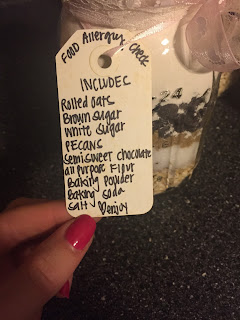 FOOD Allergy Check
INCLUDES
Rolled oats
Brown sugar
White Sugar
PECANS
Semisweet chocolate
all Purpose Flour
Baking Powder
Baking Soda
Salt ♡enjoy